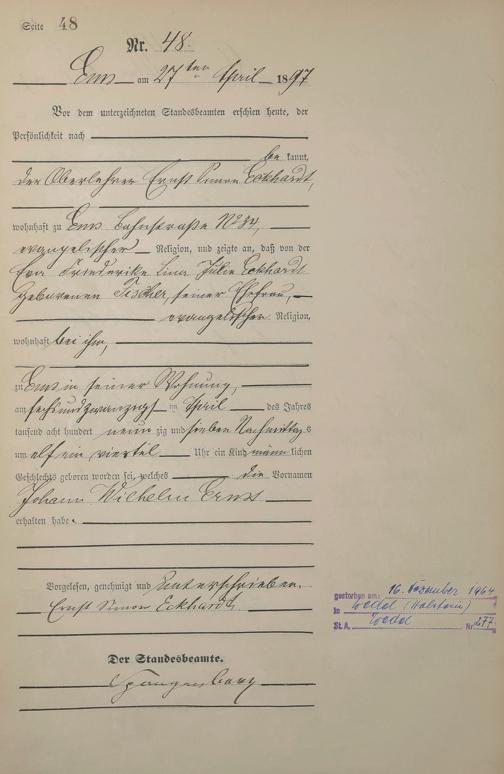 Seite 48
Nr. 48.
Ems am 27ten April 1897
Vor dem unterzeichneten Standesbeamten erschien heute, der
Persönlichkeit nach
be kannt,
der Oberlehrer Ernst Simon Eckhardt,
wohnhaft zu Ems Bahnstraße No 34,
evangelischer Religion, und zeigte an, daß von der
Friederike Lina Julie Eckhardt
geborenen Fischer, seiner Ehefrau,
evangelischer Religion,
wohnhaft bei ihm,
zu Ems in seiner Wohnung,
am sechsundzwanzigsten April des Jahres
tausend acht hundert neun zig und sieben Nachmittags
um elf ein viertel Uhr ein Kind männlichen
Geschlechts geboren worden sei, welches die Vornamen
Johann Wilhelm Ernst
erhalten habe.
Vorgelesen, genehmigt und unterschrieben.
Ernst Simon Eckhardt.
Der Standesbeamte.
Spangenberg
gestorben am: 16. Dezember 1964
in Wedel (Holstein)
St. A. Wedel Nr. 277